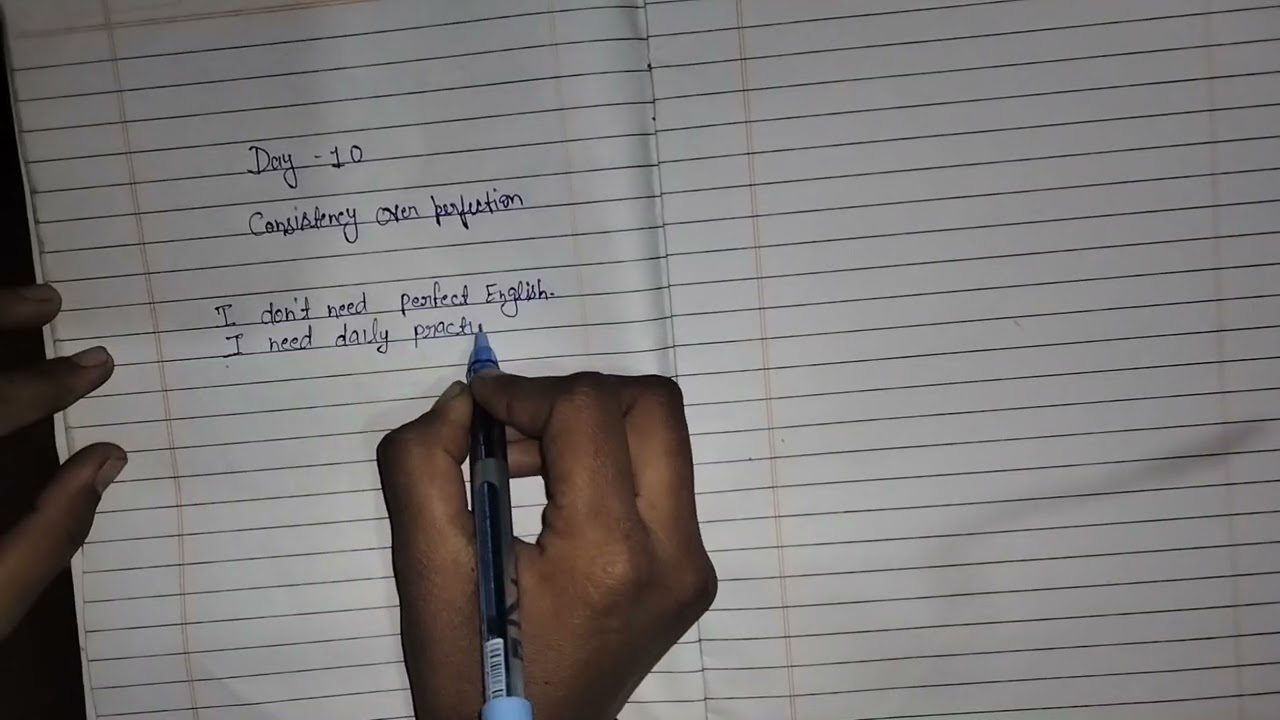 Day - 10
Consistency over perfection
I don't need perfect English.
I need daily